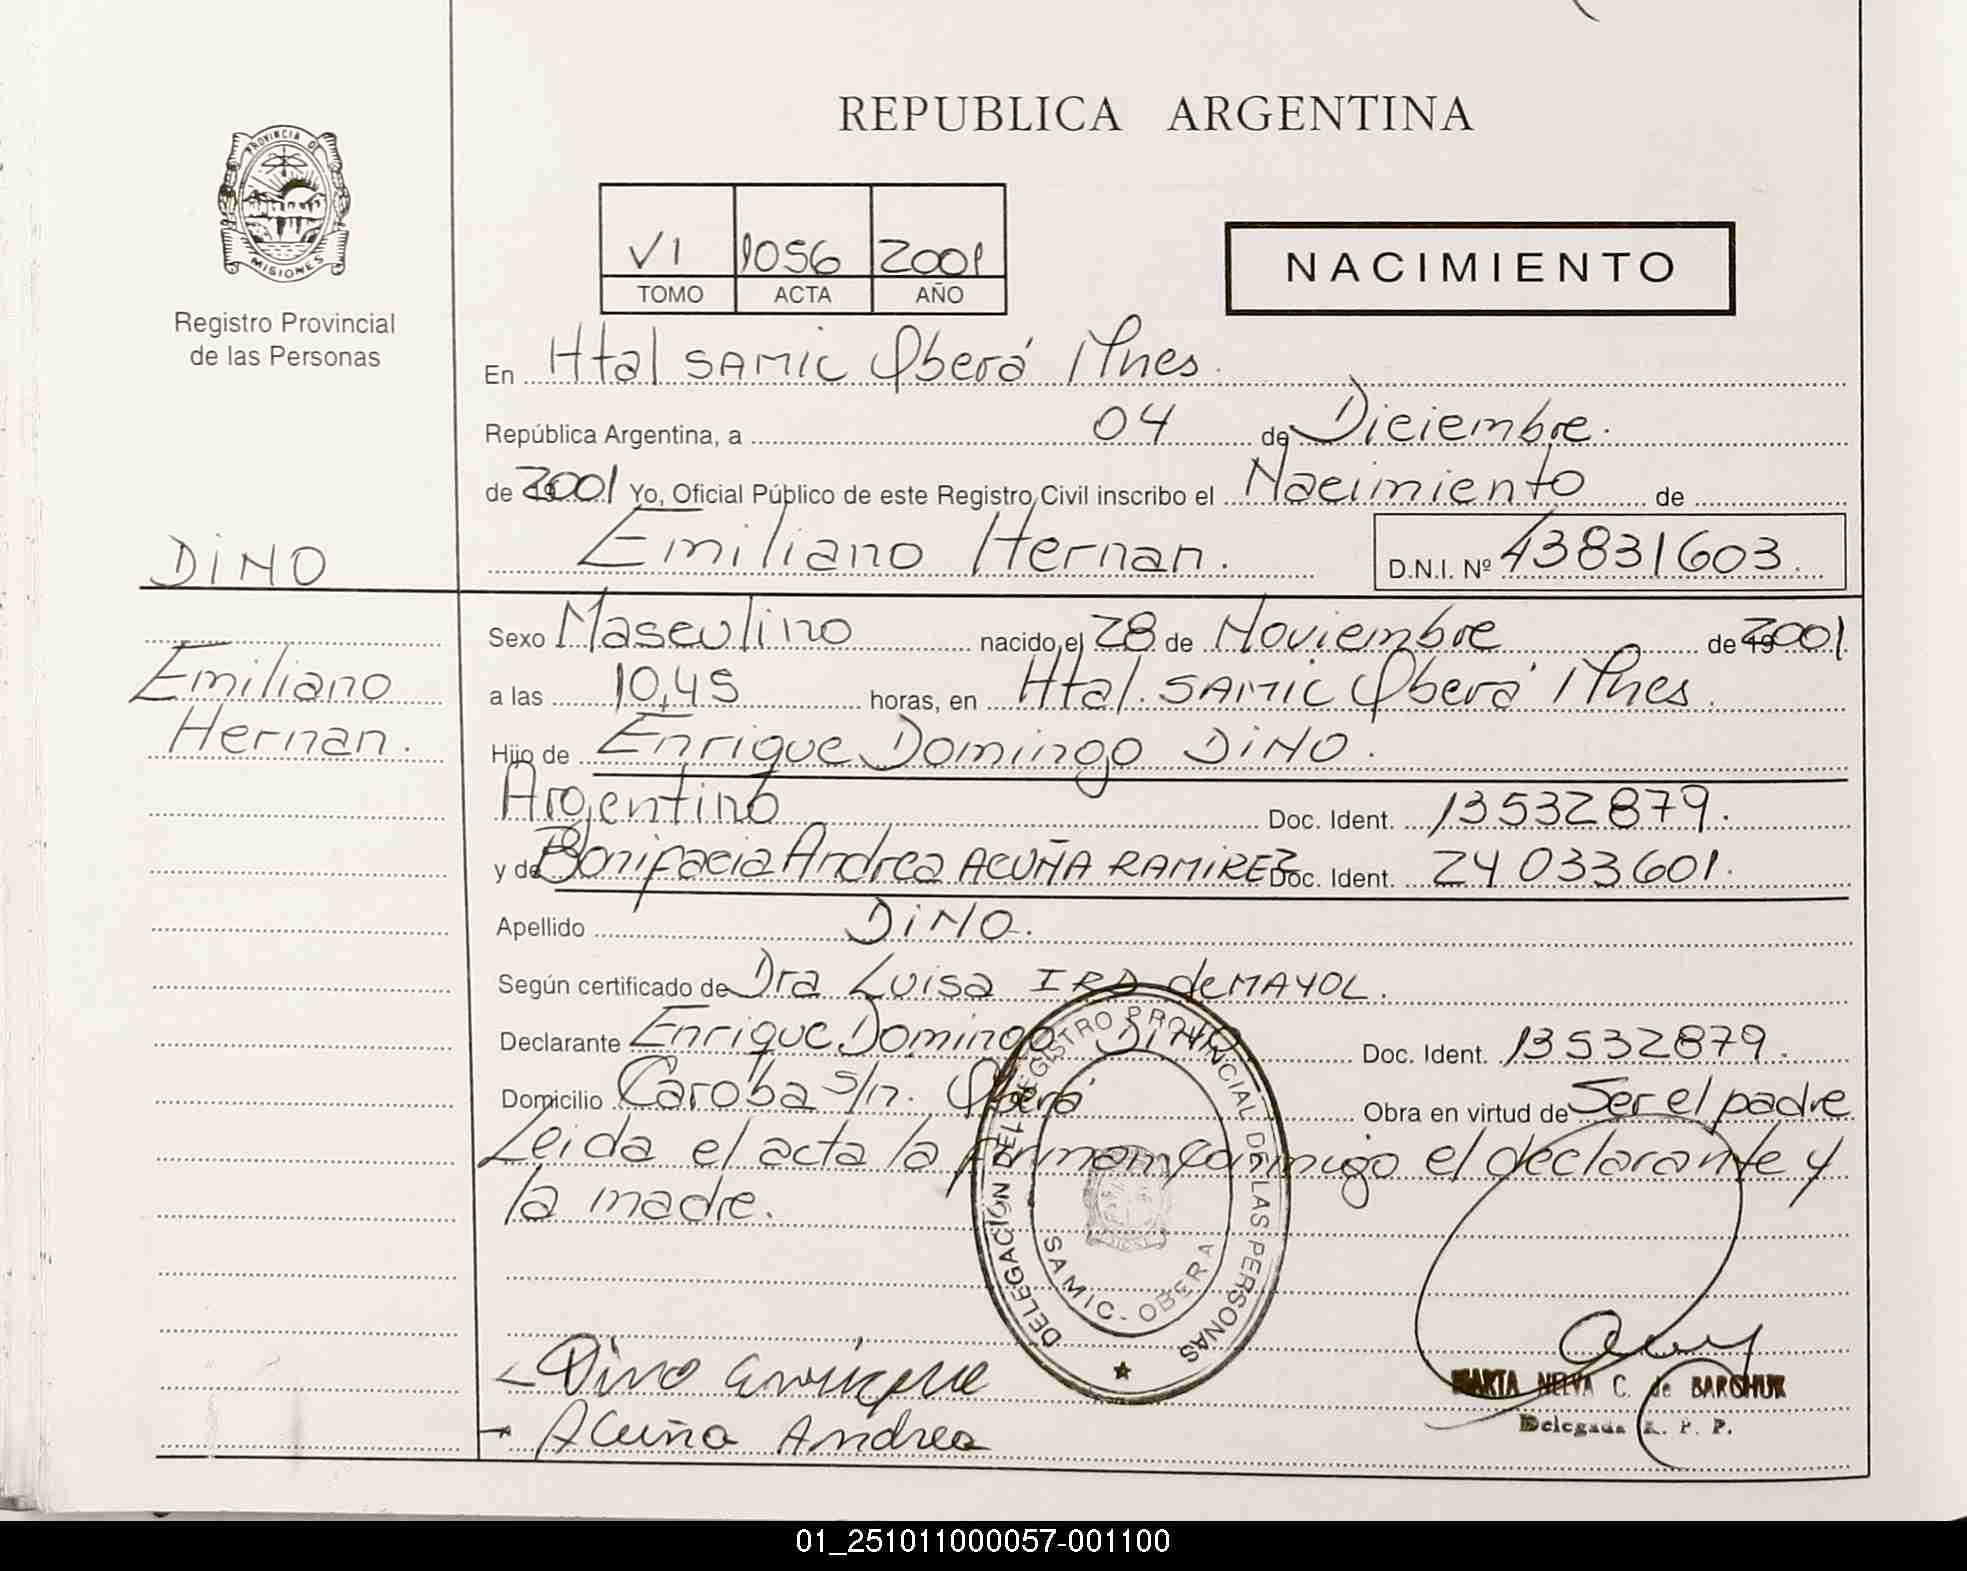 REPUBLICA ARGENTINA
PROVINCIA DE
MISIONES
Registro Provincial
de las Personas
VI 1056 2001
TOMO ACTA AÑO
NACIMIENTO
En Htal SAMIC Oberá Mnes.
República Argentina, a 04 de Diciembre.
de 2001 Yo, Oficial Público de este Registro Civil inscribo el Nacimiento de
Emiliano Hernan. D.N.I. Nº 43831603.
DiNO
Emiliano
Hernan.
Sexo Masculino nacido el 28 de Noviembre de 19 2001
a las 10,45 horas, en Htal. SAMIC Oberá Mnes.
Hijo de Enrique Domingo DiNO.
Argentino Doc. Ident. 13532879.
y de Bonifacia Andrea ACUÑA RAMIREZ Doc. Ident. 24 033601.
Apellido DiNO.
Según certificado de Dra Luisa IRD de MAYOL.
Declarante Enrique Domingo DiNO Doc. Ident. 13532879.
Domicilio Caroba s/n. Oberá Obra en virtud de Ser el padre
Leida el acta la firman conmigo el declarante y
la madre.
DELEGACIÓN DEL REGISTRO PROVINCIAL DE LAS PERSONAS
SAMIC - OBERA
Dino enrique
Acuña Andrea
MARTA NELVA C. de BARCHUK
Delegada R. P. P.
01_251011000057-001100